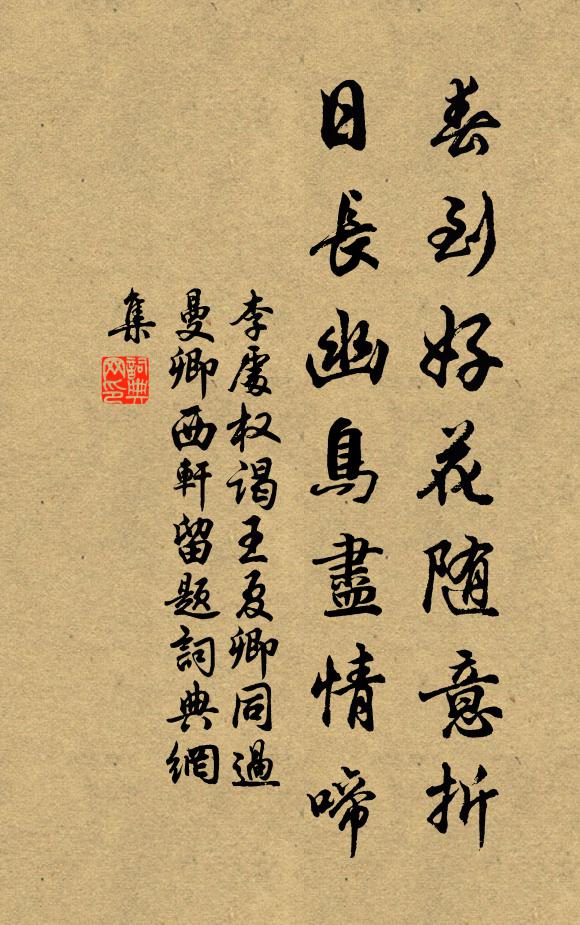 春到好花随意折
日長幽鳥盡情啼
李處权謁王夏卿同過
曼卿西軒留題詞典網
集
詞典
网印